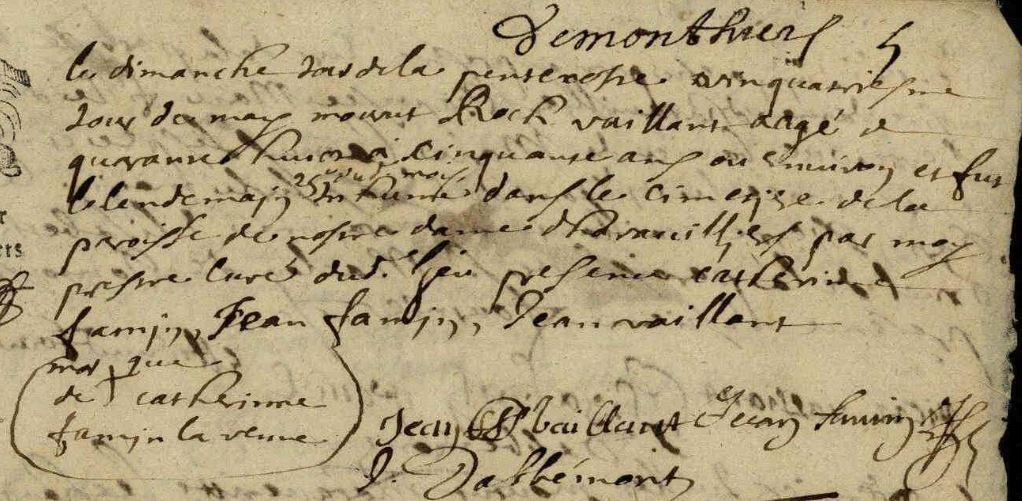 Demonthiers
le dimanche jour de la pentecoste vinquatriesme
jour de may mourut Roch vaillant aagé de
quarante huict a cinquante ans ou environ et fut
25e dud. mois
le lendemain inhumé dans le cimetiere de la
paroisse de nostre dame par moy
prestre curé dud. lieu presence catherinne
famin, Jean famin, Jean vaillant
marque
de catherinne
famin la veuve
Jean Vaillant Jean famin
J. Dabhémont
ers